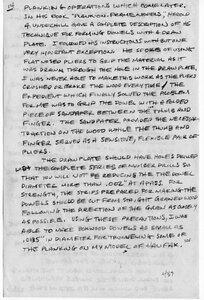 PLANKING OPERATIONS WHICH COME LATER.
IN HIS BOOK, PLANK-ON-FRAME MODELS, HAROLD
A UNDERHILL GIVES A COMPLETE DESCRIPTION OF HIS
TECHNIQUE FOR FORMING DOWELS WITH A DRAW
PLATE. I FOLLOWED HIS INSTRUCTIONS WITH BUT ONE
VERY IMPORTANT EXCEPTION. HE SPEAKS OF USING
FLAT NOSED PLIERS TO GRIP THE MATERIAL AS IT
WAS DRAWN THROUGH THE HOLE IN THE DRAW PLATE.
I WAS NEVER ABLE TO MAKE THIS WORK AS THE PLIERS
CRUSHED OR BROKE THE WOOD EVERY TIME. THE
EXPEDIENT WHICH FINALLY SOLVED THE PROBLEM
FOR ME WAS TO GRIP THE DOWEL WITH A FOLDED
PIECE OF SANDPAPER BETWEEN THE THUMB AND
FINGER. THE SANDPAPER PROVIDED THE NECESSARY
TRACTION ON THE WOOD WHILE THE THUMB AND
FINGER SERVED AS A SENSITIVE, FLEXIBLE PAIR OF
PLIERS.
THE DRAW PLATE SHOULD HAVE HOLES DRILLED
THE COMPLETE SERIES OF NUMBER DRILLS SO
THAT YOU WILL NOT BE REDUCING THE DOWEL
DIAMETER MORE THAN .002" AT A PASS. FOR
STRENGTH, THE STRIPS PREPARED FOR MAKING THE
DOWELS SHOULD BE CUT FROM STRAIGHT GRAINED WOOD
FOLLOWING THE DIRECTION OF THE GRAIN AS CLOSELY
AS POSSIBLE. USING THESE PRECAUTIONS, I WAS
ABLE TO MAKE BOXWOOD DOWELS AS SMALL AS
.0185" IN DIAMETER FOR TRUNNELING SOME OF
THE PLANKING ON MY MODEL OF HALIFAX.